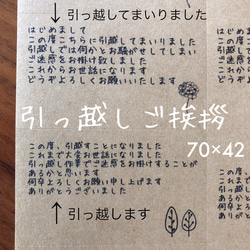 ↓引っ越してまいりました
はじめまして
この度こちらに引越してまいりました
引越しでは何かとお騒がせしてしまい
ご迷惑をお掛け致しました
これからお世話になります
どうぞよろしくお願い致します
引っ越しご挨拶
70×42
この度、引越すことになりました
これまで大変お世話になりました
引っ越し作業でご迷惑をお掛けすることが
あるかと思います
何卒よろしくお願い申し上げます
ありがとうございました
↑引っ越します